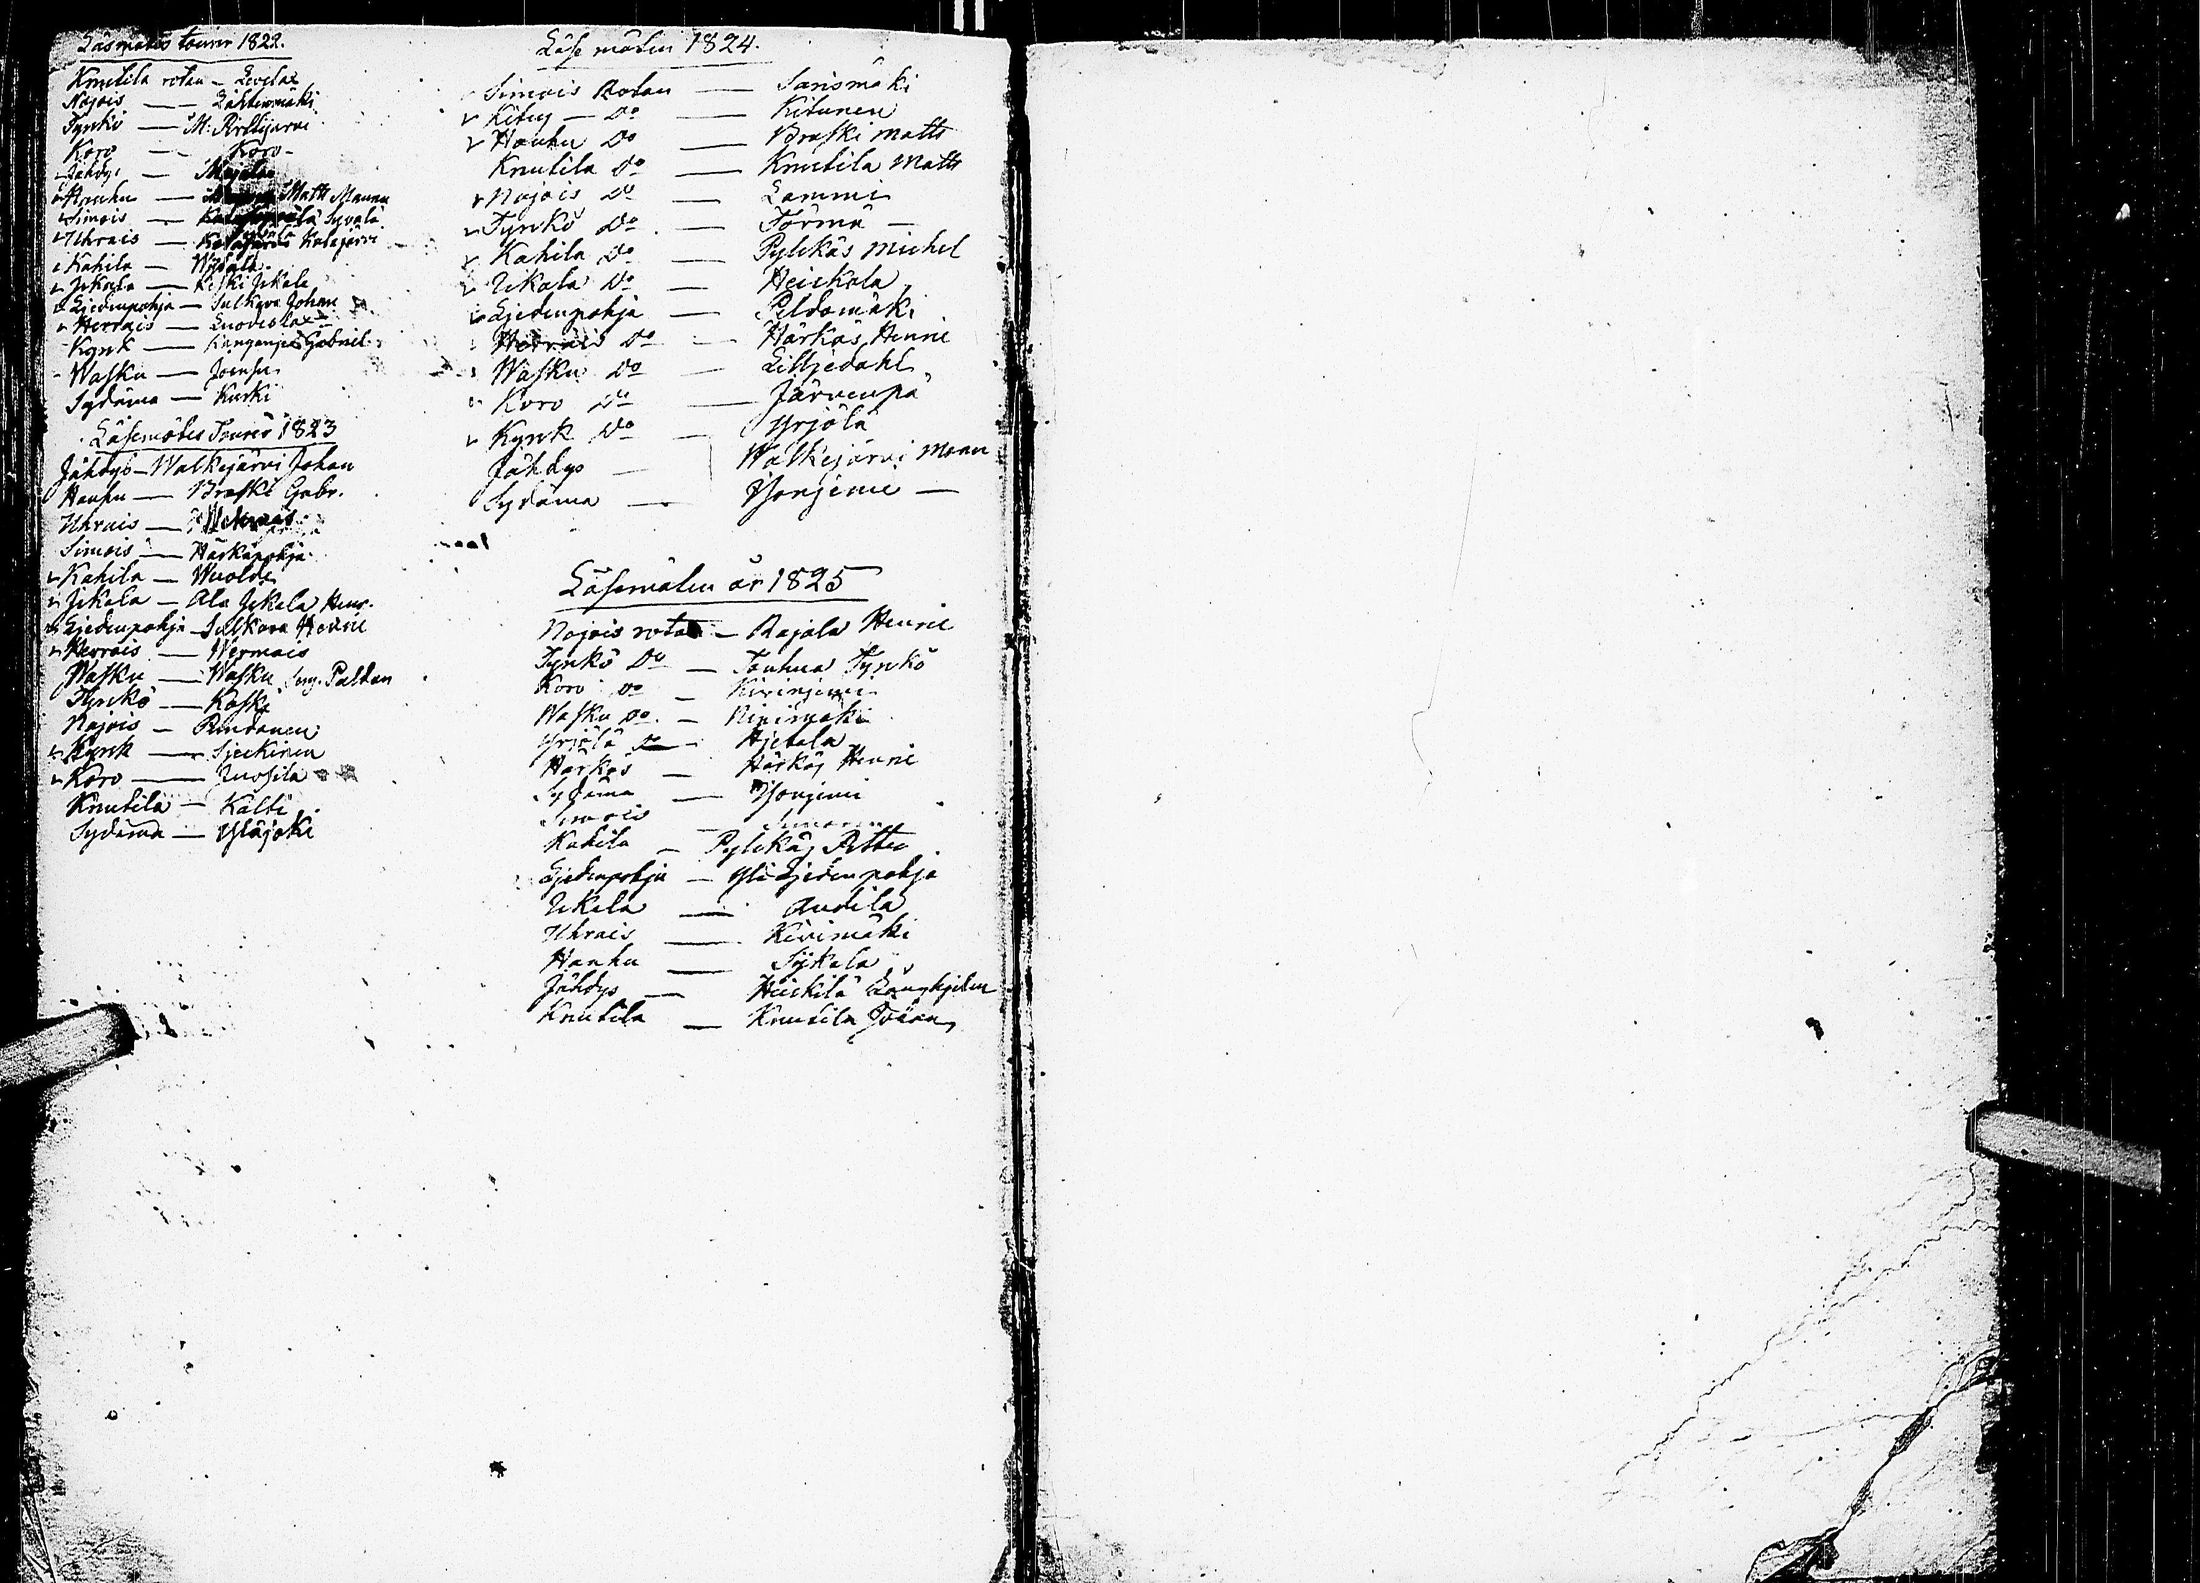 Läsmötes tourer 1822.
Knutila rotan - Levelax
Nojois — Lähteenmäki
Tynkö — M: Pirttijärvi
Koro — Koro
Jähdys — Majala
Hauhu — Matts Mannu
Simois — Syvälä
Uhrais — Katajärvi Katajärvi
Kahila — Wähälä
Jekala — Keski Jekala
Liedenpohja — Sulkava Johan
Herrais — Luodeslax
Kynk — Kangenpä Gabriel
Wasku — Joensu
Sydäma — Kurki
Läsemötes Tourer 1823
Jähdys — Walkejärvi Johan
Hauhu — Braski Gabr.
Uhrais —
Simois — Härkäpohja
Kahila — Wuolde
Jekala — Ala Jekala Henr.
Liedenpohja — Sulkava Henric
Herrais — Wermais
Wasku — Wasku Serg. Paldan
Tynkö — Koski
Nojois — Rindanen
Kynk — Sjeckinen
Koro — Juosila
Knutila — Kalti
Sydäma — Yläjoki
Läse möten 1824.
Simois Rotan — Sarismäki
Kituy — Do — Kitunen
Hauhu Do — Braski Matts
Knutila Do — Knutila Matts
Nojois Do — Lammi
Tynkö Do — Törmä —
Kahila Do — Pylkäs Michel
Jekala Do — Heickala
Liedenpohja — Peldomäki
Herrais Do — Härkäs Henric
Wasku Do — Lilljedahl
Koro Do — Järvenpä
Kynk Do — Yrjölä
Jähdys — Walkejärvi Mann
Sydäma — Isonjemi —
Läsemöten år 1825
Nojois rotan — Rajala Henric
Tynkö Do — Touhua Tynkö
Koro Do — Kivinjemi
Wasku Do. — Ninimäki
Yrjölä Do — Hjetala
Härkäs — Härkäs Henric
Sydäma — Isonjemi
Simois —
Kahila — Pylkäs Petter
Liedenpohja — Yli Liedenpohja
Jekala — Andila
Uhrais — Kivimäki
Hauhu — Sykala
Jähdys — Heickilä Långhjelm
Knutila — Knutila Johan